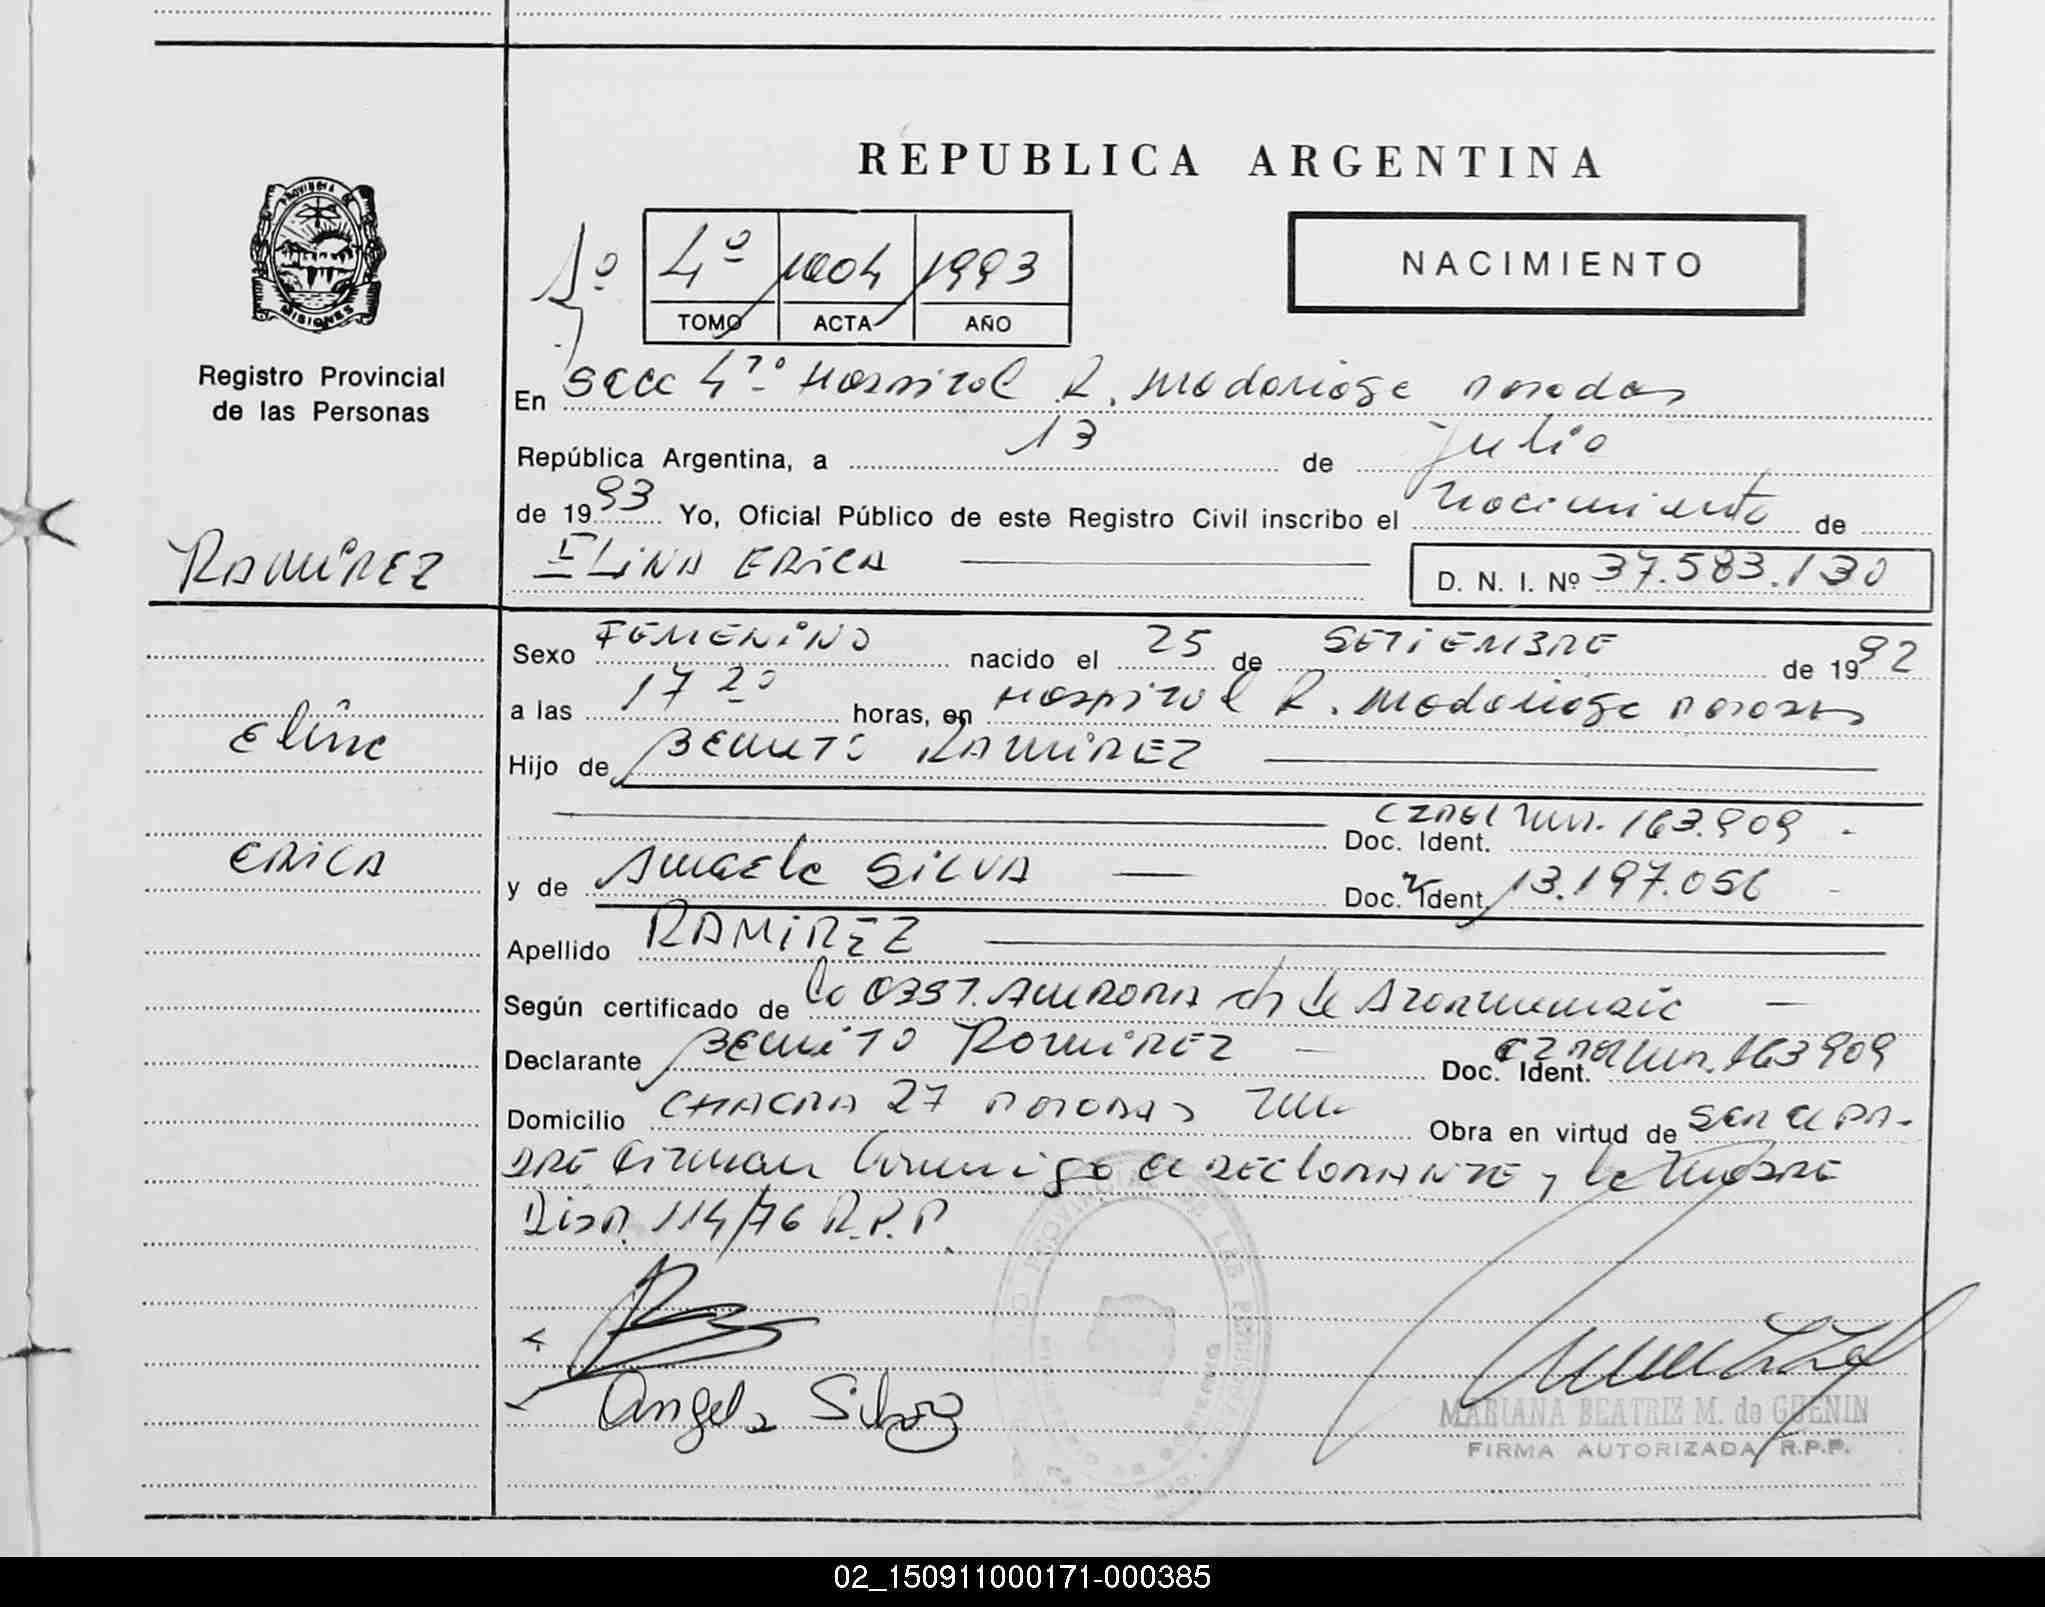 REPUBLICA ARGENTINA
PROVINCIA DE
MISIONES
Registro Provincial
de las Personas
4º 1004 1993
TOMO ACTA AÑO
NACIMIENTO
En Secc 4º Hospital R. Madariaga Posadas
República Argentina, a 13 de Julio
de 1993 Yo, Oficial Público de este Registro Civil inscribo el nacimiento de
RAMIREZ
ELINA ERICA
D. N. I. Nº 37.583.130
Sexo FEMENINO nacido el 25 de SETIEMBRE de 1992
Elina
a las 17 20 horas, en Hospital R. Madariaga Posadas
Hijo de BENITO RAMIREZ
Doc. Ident. 163.909
ERICA
y de Angela SILVA Doc. Ident. 13.197.056
Apellido RAMIREZ
Según certificado de la OBST. AURORA de
Declarante BENITO RAMIREZ Doc. Ident. 163909
Domicilio CHACRA 27 POSADAS Obra en virtud de SER el PA-
DRE Firman Conmigo el DECLARANTE y la MADRE
Disp. 114/76 R.P.P.
Angela Silva
MARIANA BEATRIZ M. de GUENIN
FIRMA AUTORIZADA R.P.P.
02_150911000171-000385